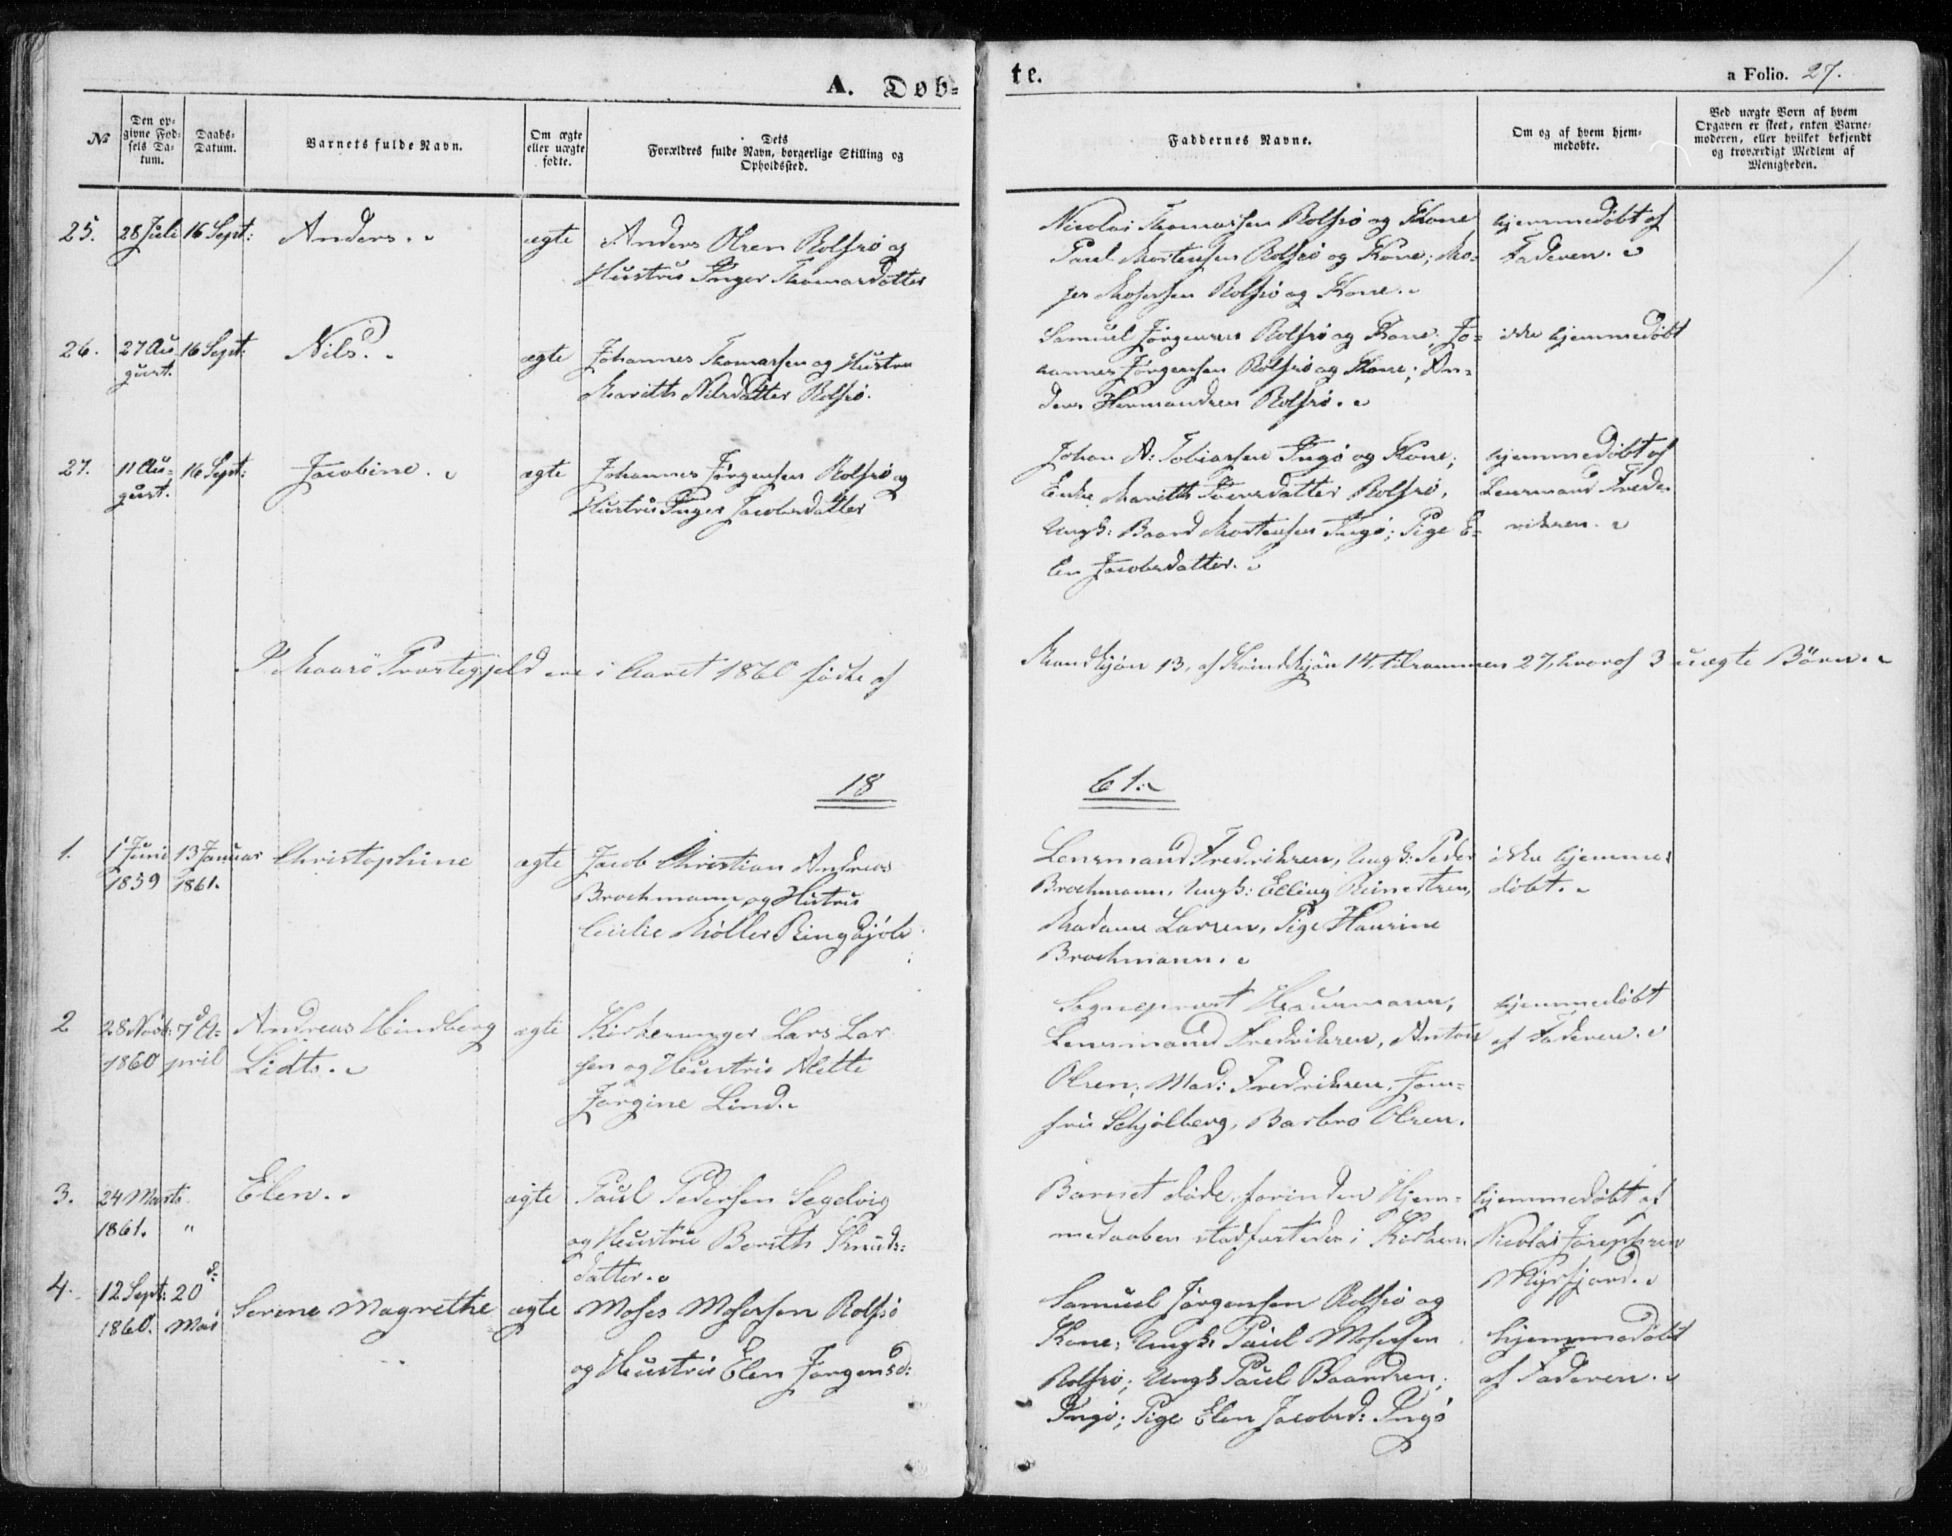 A. Døb-
te.
a Folio. 27.
No
Den op-
givne Fød-
sels Da-
tum.
Daabs-
Datum.
Barnets fulde Navn.
Om ægte
eller uægte
fødte.
Dets
Forældres fulde Navn, borgerlige Stilling og
Opholdssted.
Faddernes Navne.
Om og af hvem hjem-
medøbte.
Ved uægte Børn af hvem
Opgaven er skeet, enten Barne-
moderen, eller hvilket bekjendt
og troværdigt Medlem af
Menigheden.
25. 28 Juli 16 Sept: Anders. ægte
Anders Olsen Rolfsø og
Hustru Inger Thomasdatter
Nicolai Thomassen Rolfsø og Kone
Paul Mortensen Rolfsø og Kone; Mo-
ses Mosessen Rolfsø og Kone.
hjemmedøbt af
Faderen.
26. 27 Au- 16 Sept: Nils. ægte
gust.
Johannes Thomassen og Hustru
Marith Nilsdatter Rolfsø.
Samuel Jørgensen Rolfsø og Kone; Jo-
hannes Jørgensen Rolfsø og Kone; An-
ders Hermandsen Rolfsø.
ikke hjemmedøbt
27. 11 Au- 16 Sept: Jacobine. ægte
gust.
Johannes Jørgensen Rolfsø og
Hustru Inger Jacobsdatter
Johan A: Tobiassen Ingø og Kone;
Enke Marith Iversdatter Rolfsø,
Ungk: Baard Mortensen Ingø; Pige E-
len Jacobsdatter.
hjemmedøbt af
Lensmand Frede-
riksen.
I Maasø Præstegjeld ere i Aaret 1860 fødte af
Mandkjøn 13, af Kvindekjøn 14, tilsammen 27, hvoraf 3 uægte Børn.
18
61.
1. 1 Juni 13 Januar Christophine ægte
1859 1861.
Jacob Christian Andreas
Brochmann og Hustru
Cecilie Møller Ringskjøb
Lensmand Fredriksen, Ungk: Peder
Brochmann, Ungk: Elling Reinertsen,
Madame Larsen, Pige Haurine
Brochmann.
ikke hjemme-
døbt.
2 28 Novb: 7d A- Andreas Hindberg ægte
1860 pril Lidts.
Kirkesanger Lars Lar-
sen og Hustru Alette
Jørgine Lind.
Sognepræst Haurmann,
Lensmand Fredriksen, Anton
Olsen, Mad: Fredriksen, Jom-
fru Schjølberg, Barbro Olsen.
hjemmedøbt
af Faderen.
3. 24 Marts Elen. ægte
1861. "
Paul Pedersen Segelvig
og Hustru Berith Knuds-
datter.
Barnet døde, forinden Hjem-
medaaben stadfæstedes i Kirken
hjemmedøbt af
Nicolai Josephsen
Ryfjord.
4. 12 Sept: 20d Serene Magrethe ægte
1860. Mai
Moses Mosessen Rolfsø
og Hustru Elen Jørgensd:
Samuel Jørgensen Rolfsø og
Kone; Ungk: Paul Mosessen
Rolfsø; Ungk Paul Baardsen,
Ingø; Pige Elen Jacobsd: Ingø
hjemmedøbt
af Faderen.